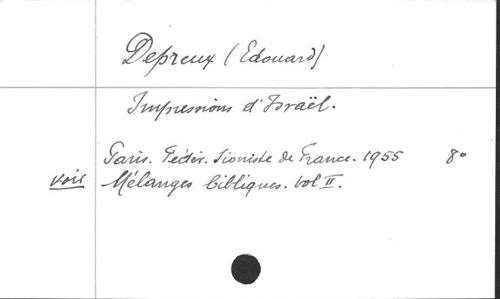 Depreux (Edouard)
Impressions d'Israël.
Paris. Féder. Sioniste de France. 1955 8°
voir Mélanges bibliques. vol II.